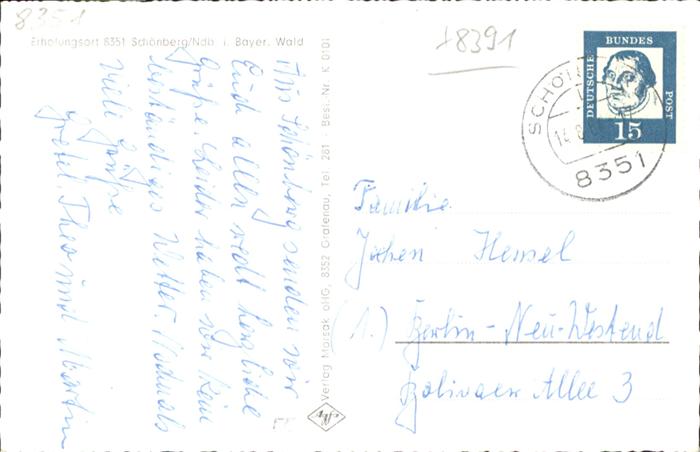 8351
Erholungsort 8351 Schönberg/Ndb. i. Bayer. Wald
+8391
DEUTSCHE
BUNDES
POST
15
SCHÖN
14.8.
8351
Aus Schönberg senden wir
Euch allen recht herzliche
Grüße. Leider haben wir kein
beständiges Wetter. Nochmals
viele Grüße
Gretel, Theo und Martin
Verlag Maisak oHG, 8352 Grafenau, Tel. 261 · Best. Nr. K 0101
Familie
Jochen Hensel
(1.) Berlin-Neu-Westend
Bolivaer Allee 3